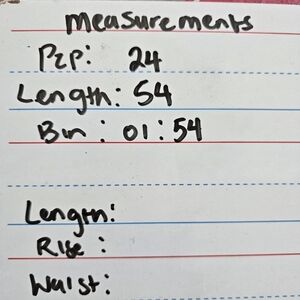 Measurements
P2P: 24
Length: 54
Bin: 01:54
Length:
Rise:
Waist: